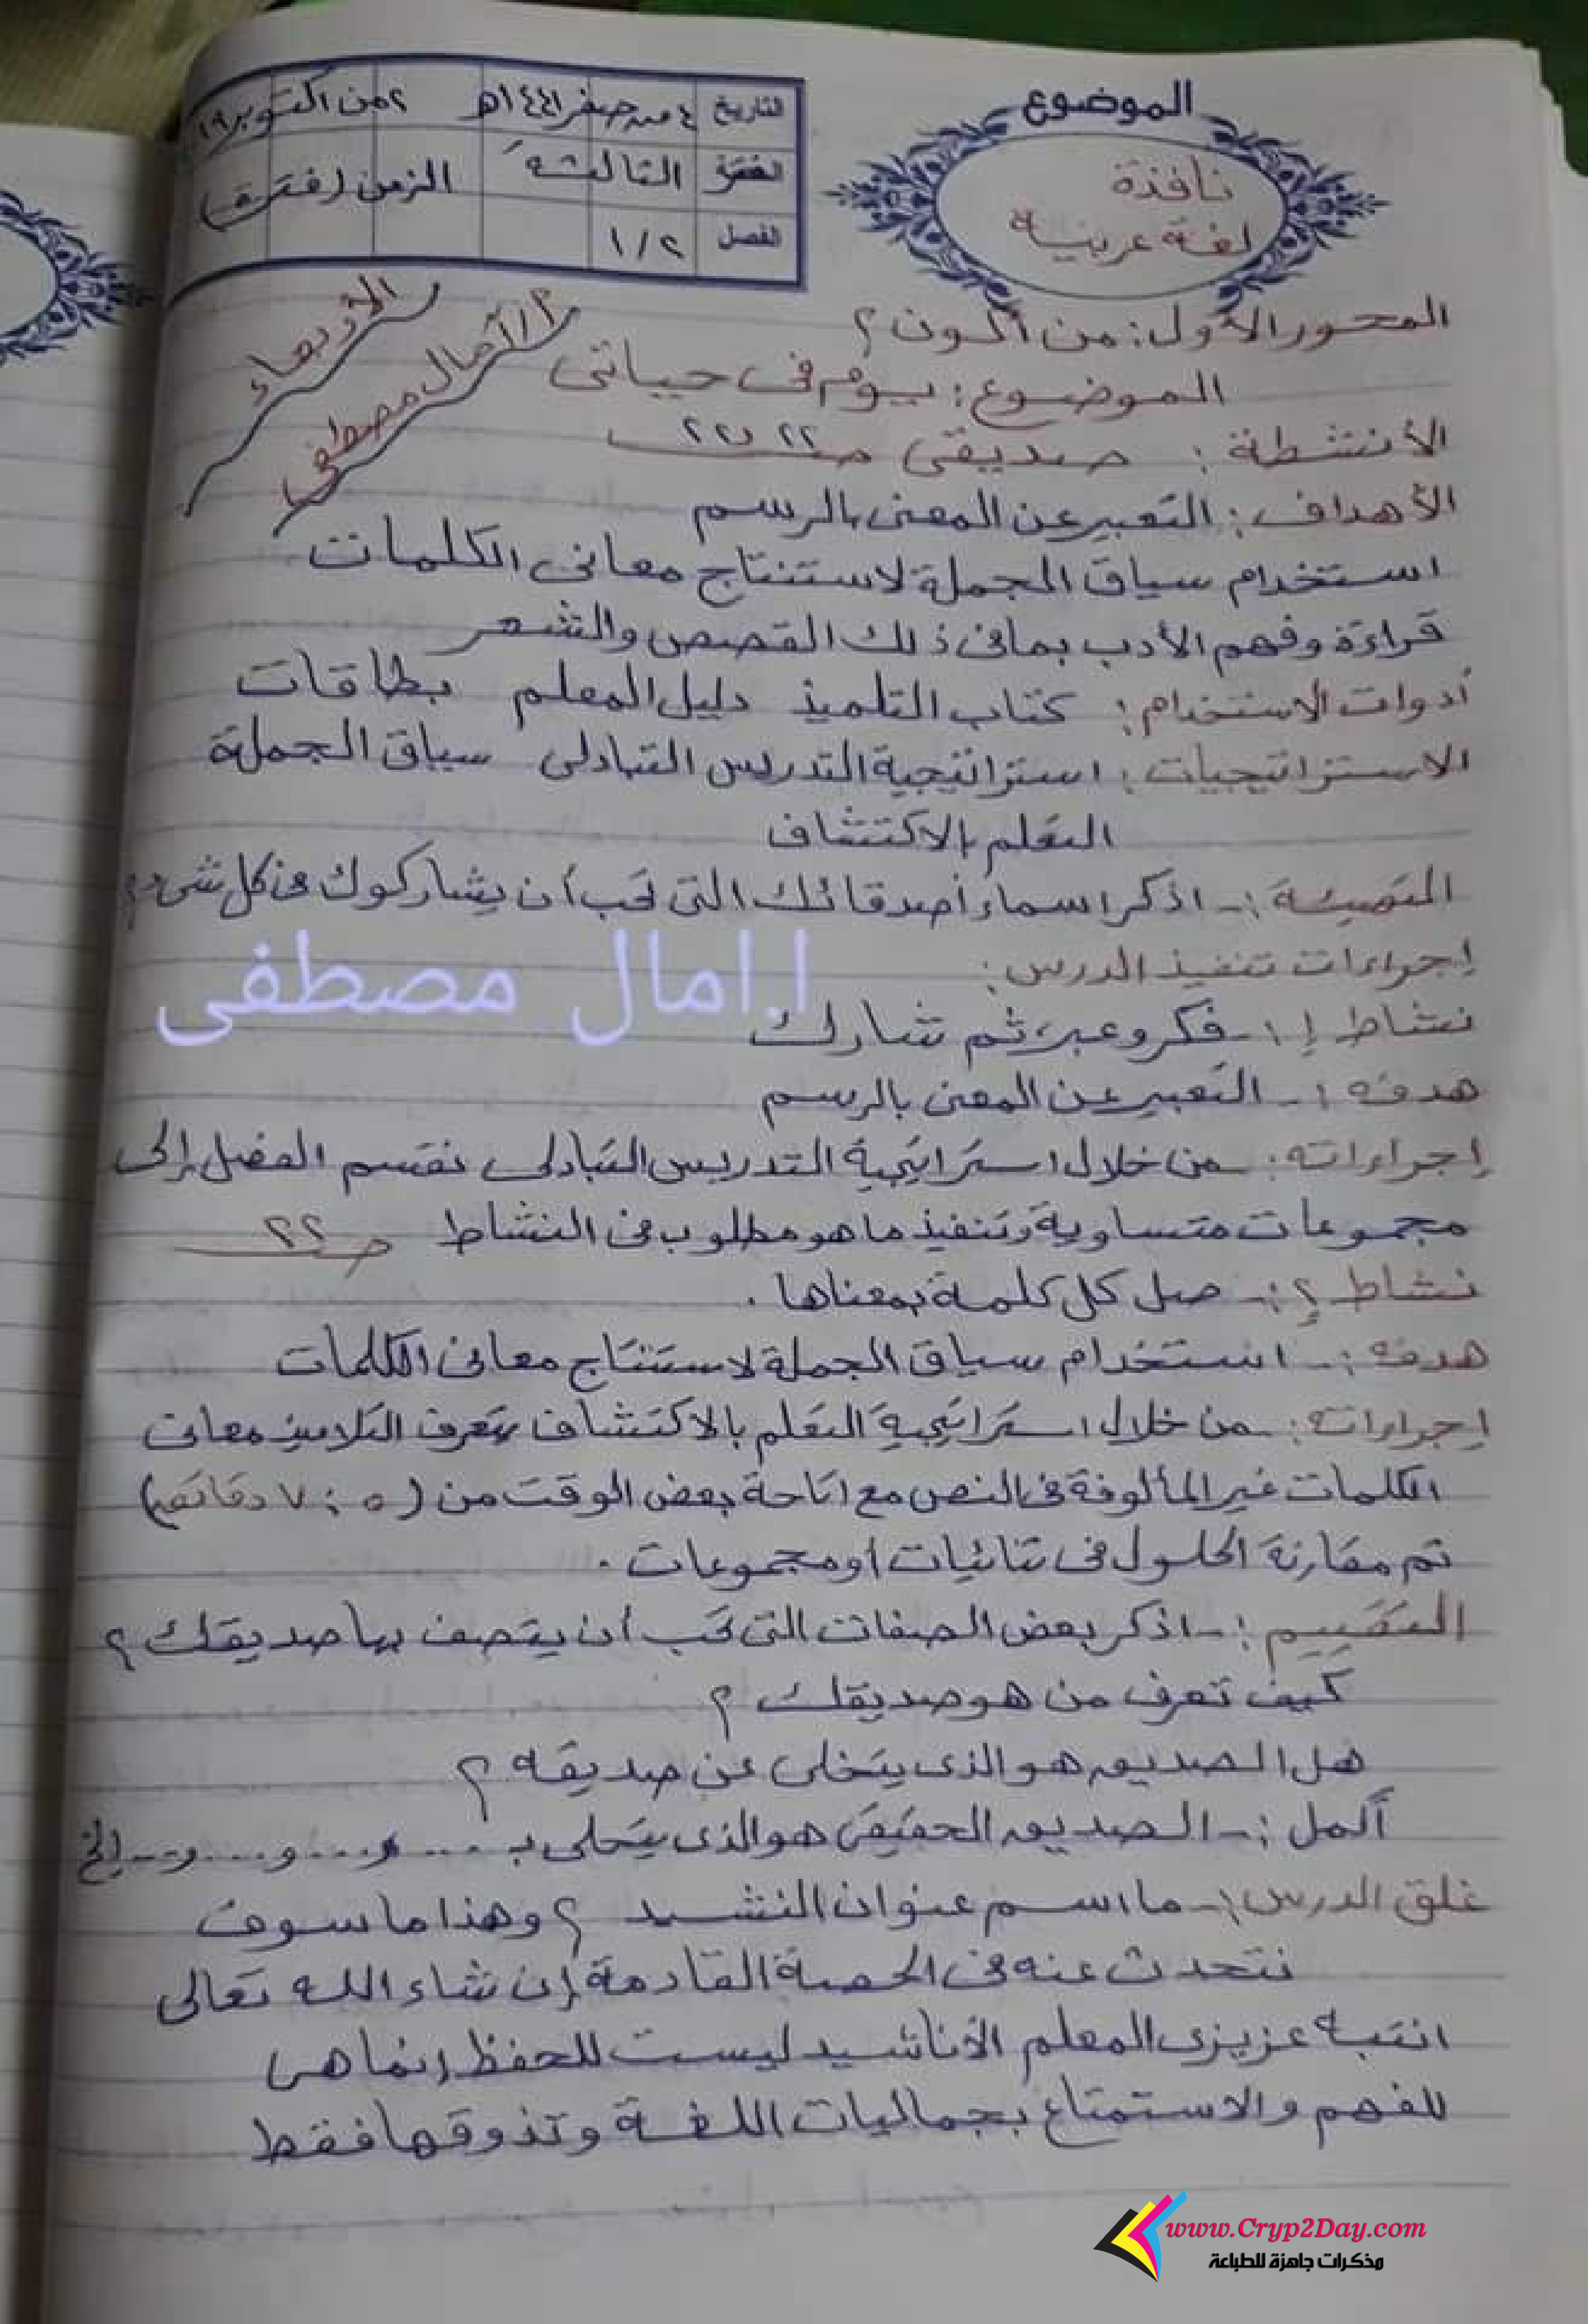 الموضوع
نافذة
لغة عربية
التاريخ ٤ من صفر ١٤٤١هـ ٢ من أكتوبر ١٩
الفترة الثالثة الزمن (فترة)
الفصل ١/٢
الأربعاء
أ/ آمال مصطفى
المحور الأول: من أكون؟
الموضوع: يوم في حياتي
الأنشطة: صديقي صـ ٢٢
الأهداف: التعبير عن المعنى بالرسم
استخدام سياق الجملة لاستنتاج معاني الكلمات
قراءة وفهم الأدب بما في ذلك القصص والشعر
أدوات الاستخدام: كتاب التلميذ دليل المعلم بطاقات
الاستراتيجيات: استراتيجية التدريس التبادلى سياق الجملة
التعلم بالاكتشاف
التهيئة:- اذكر اسماء أصدقائك التى تحب أن يشاركوك فى كل شىء؟
إجراءات تنفيذ الدرس:
ا.امال مصطفى
نشاط ١:- فكر وعبر ثم شارك
هدفه:- التعبير عن المعنى بالرسم
إجراءاته:- من خلال استراتيجية التدريس التبادلى نقسم الفصل إلى
مجموعات متساوية وتنفيذ ما هو مطلوب فى النشاط صـ ٢٢
نشاط ٢:- صل كل كلمة بمعناها.
هدفه:- استخدام سياق الجملة لاستنتاج معانى الكلمات
إجراءاته:- من خلال استراتيجية التعلم بالاكتشاف يتعرف التلاميذ معانى
الكلمات غير المألوفة فى النص مع اتاحة بعض الوقت من (٥ : ٧ دقائق)
ثم مقارنة الحلول فى ثنائيات أو مجموعات.
التقييم:- اذكر بعض الصفات التى تحب أن يتصف بها صديقك؟
كيف تعرف من هو صديقك؟
هل الصديق هو الذى يتخلى عن صديقه؟
أكمل:- الصديق الحقيقى هو الذى يتحلى بـ .... و.... و.... و... إلخ
غلق الدرس:- ما اسم عنوان النشيد؟ وهذا ما سوف
نتحدث عنه فى الحصة القادمة إن شاء الله تعالى
انتبه عزيزى المعلم الأناشيد ليست للحفظ إنما هى
للفهم والاستمتاع بجماليات اللغة وتذوقها فقط
www.Cryp2Day.com
مذكرات جاهزة للطباعة